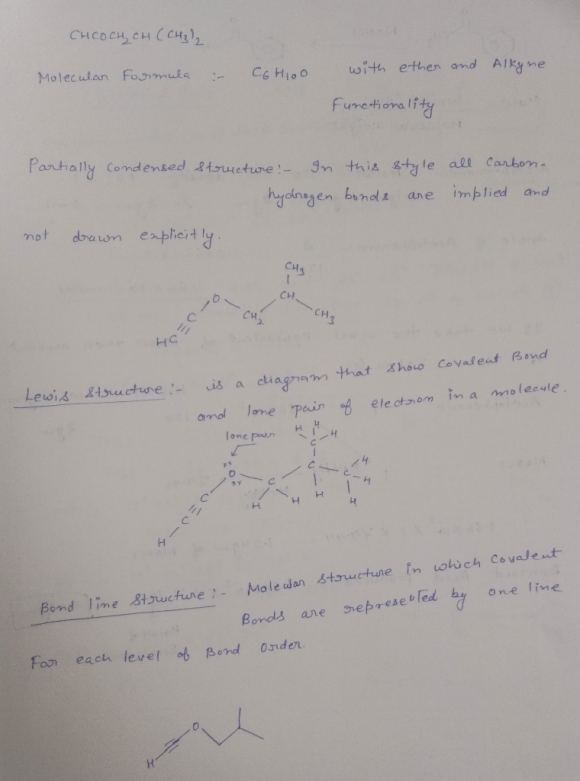 CHCOCH2CH(CH3)2
Molecular Formula :- C6H10O with ether and Alkyne
Functionality
Partially Condensed Structure:- In this style all Carbon-
hydrogen bonds are implied and
not drawn explicitly.
CH3
CH
O
CH2
CH3
C
HC
Lewis Structure:- is a diagram that show Covalent Bond
and lone pair of electron in a molecule.
lone pair
H H
C H
O C C H
C C H
H H H H
C
H
Bond line Structure:- Molecular structure in which Covalent
Bonds are represented by one line
For each level of Bond Order.
O
H